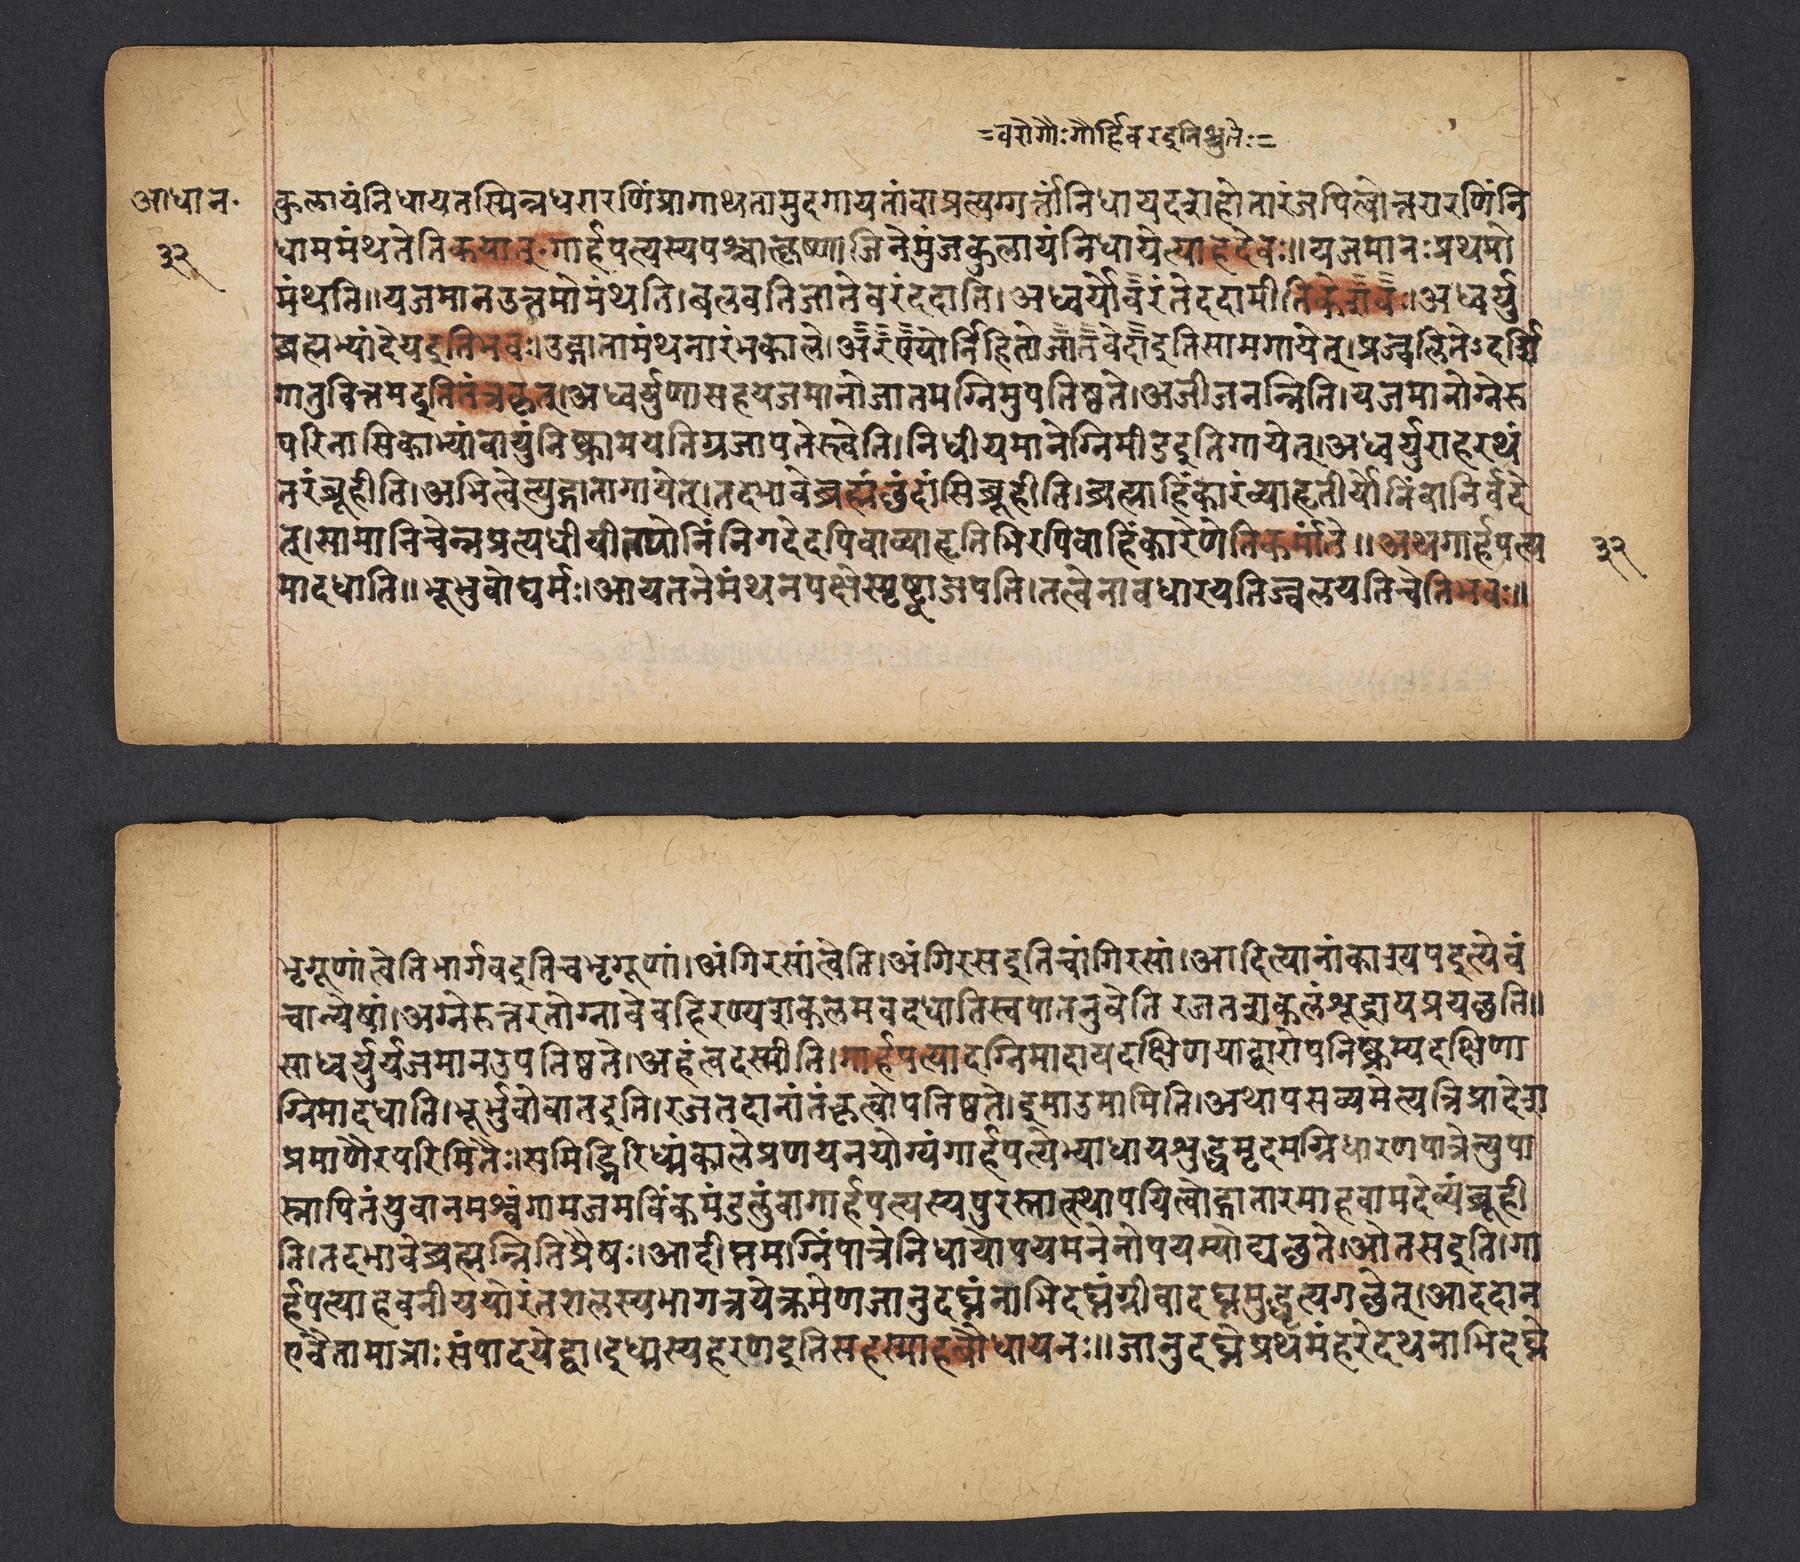 =वरोगौःगौर्हिवरइतिश्रुतेः=
आधान॰
३२
कुलायंनिधायतस्मिन्नधरारणिंप्रागाथतामुदगायतांवाप्रत्यग्गर्त्तांनिधायदशहोतारंजपित्वोत्तरारणिंनि
धाममंथतेतिकयात्॰गार्हपत्यस्यपश्चात्कृष्णाजिनेमुंजकुलायंनिधायेत्याहदेवः॥यजमानःप्रथमो
मंथति॥यजमानउत्तमोमंथति।बलवतिजातेवरंददाति।अध्वर्योवरंतेददामीतिकेशवः।अध्वर्यु
ब्रह्मभ्यांदेयइतिभवः।उद्गातामंथनारंभकाले।अरण्योर्निहितोजातवेदाइतिसामगायेत्।प्रज्वलितेऽदर्शि
गातुवित्तमइतितंत्रकृत्।अध्वर्युणासहयजमानोजातमग्निमुपतिष्ठते।अजीजनन्निति।यजमानोग्नेरु
परिनासिकाभ्यांवायुंनिष्क्रामयतिप्रजापतेस्त्वेति।निधीयमानेग्निमीडइतिगायेत्।अध्वर्युराहरथं
तरंब्रूहीति।अभित्वेत्युद्गातागायेत्।तदभावेब्रह्मंछंदांसिब्रूहीति।ब्रह्माहिंकारंव्याहृतीर्योनिंवानिर्वदे
त्।सामानिचेन्नप्रत्यधीयीतपोनिंनिगदेदपिवाव्याहृतिभिरपिवाहिंकारेणेतिकर्मांते॥अथगार्हपत्य
३२
मादधाति॥भूर्भुवोघर्मः।आयतनेमंथनपक्षेस्पृष्ट्वाजपति।तत्वेनावधारयतिज्वलयतिचेतिभवः॥
भृगूणांत्वेतिभार्गवइतिचभृगूणां।अंगिरसांत्वेति।अंगिरसइतिचांगिरसां।आदित्यानांकाश्यपइत्येवं
चान्येषां।अग्नेरुत्तरतोग्नावेवहिरण्यशकलमवदधातिस्वपातनुवेति रजतशकलंशूद्रायप्रयछति॥
साध्वर्युर्यजमानउपतिष्ठते।अहंत्वदस्मीति।गार्हपत्यादग्निमादायदक्षिणयाद्वारोपनिष्क्रम्यदक्षिणा
ग्निमादधाति।भूर्भुवोवातइति।रजतदानांतंकृत्वोपतिष्ठते।इमाउमामिति।अथापसव्यमेत्यत्रिप्रादेश
प्रमाणैरपरिमितैः।समिद्भिरिध्मंकालेप्रणयनयोग्यंगार्हपत्येभ्याधायशुद्धमृदमग्निधारणपात्रेत्युपा
स्नापितंयुवानमश्वंगामजमविंकमंडलुंवागार्हपत्यस्यपुरस्तात्स्थापयित्वोद्गातारमाहवामदेव्यंब्रूही
ति।तदभावेब्रह्मन्नितिप्रैषः।आदीप्तमग्निंपात्रेनिधायोपयमनेनोपयम्योद्यछते।ओतसइति।गा
र्हपत्याहवनीययोरंतरालस्यभागत्रयेक्रमेणजानुदघ्नंनाभिदघ्नंग्रीवादघ्नमुद्धृत्यगछेत्।आददान
एवैतामात्राःसंपादयेद्वा।इध्मस्यहरणइतिसहस्माहबौधायनः॥जानुदघ्नेप्रथमंहरेदथनाभिदघ्ने